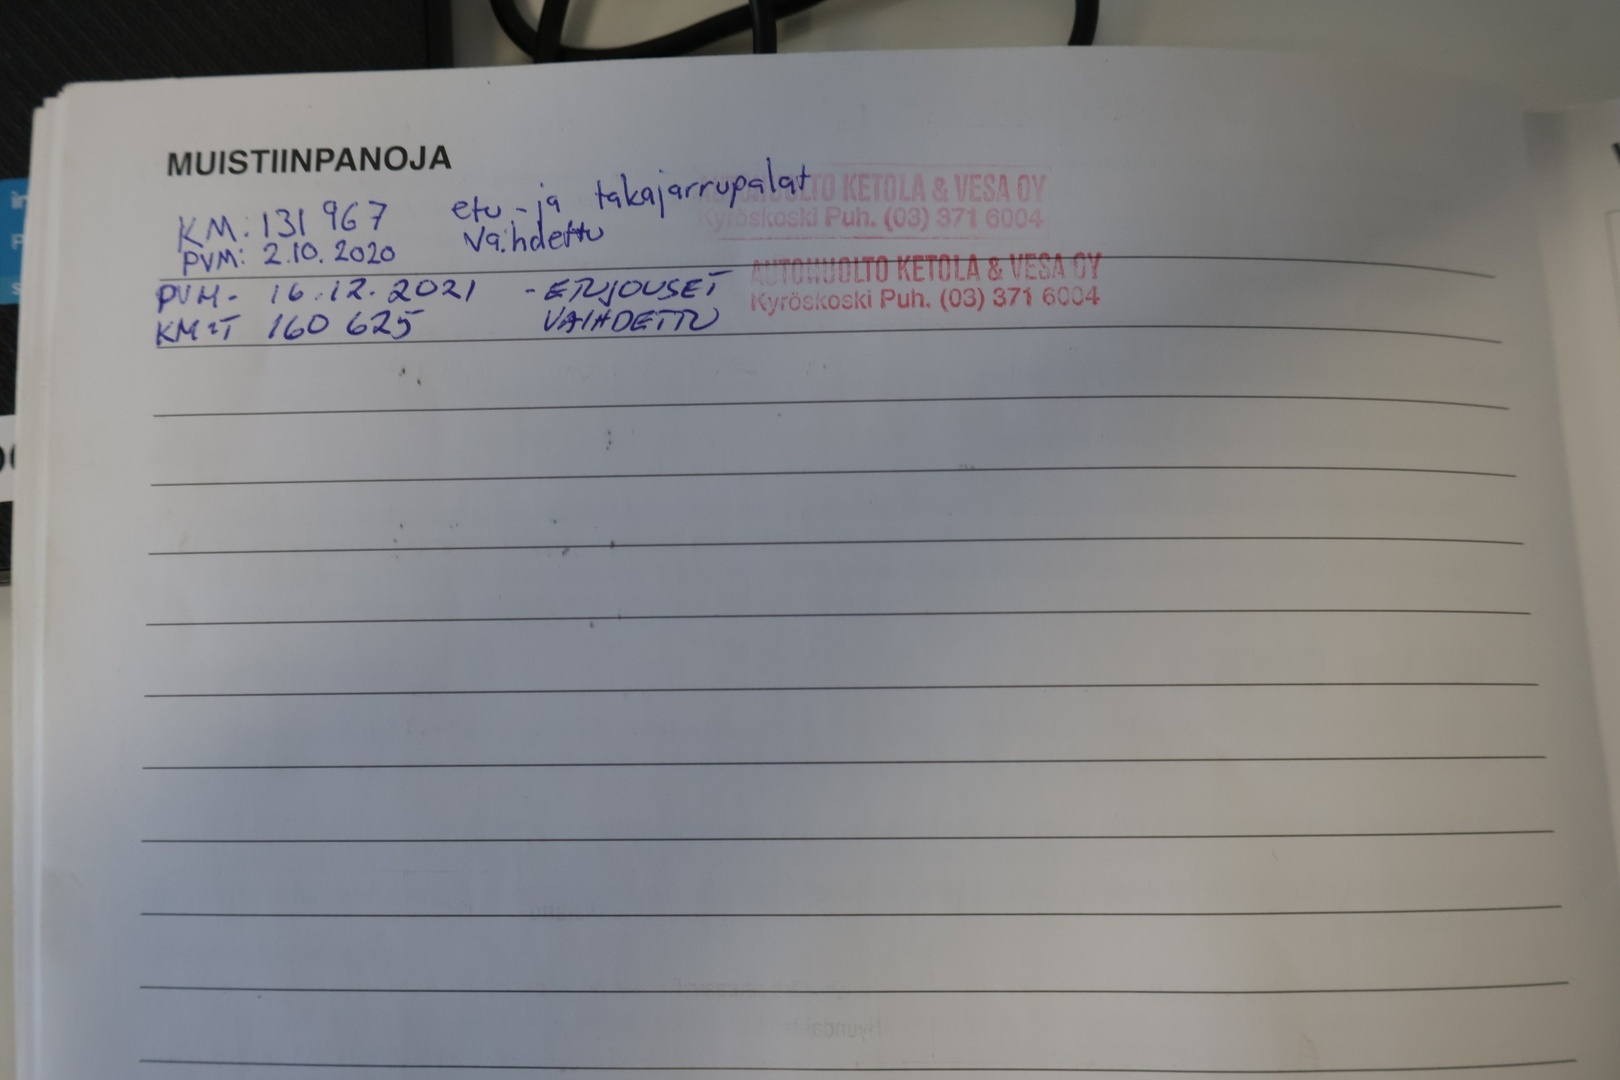 MUISTIINPANOJA
KM: 131 967 etu- ja takajarrupalat
PVM: 2.10.2020 Vaihdettu
AUTOHUOLTO KETOLA & VESA OY
Kyröskoski Puh. (03) 371 6004
PVM- 16.12.2021 - ETUJOUSET
KM:T 160 625 VAIHDETTU
AUTOHUOLTO KETOLA & VESA OY
Kyröskoski Puh. (03) 371 6004